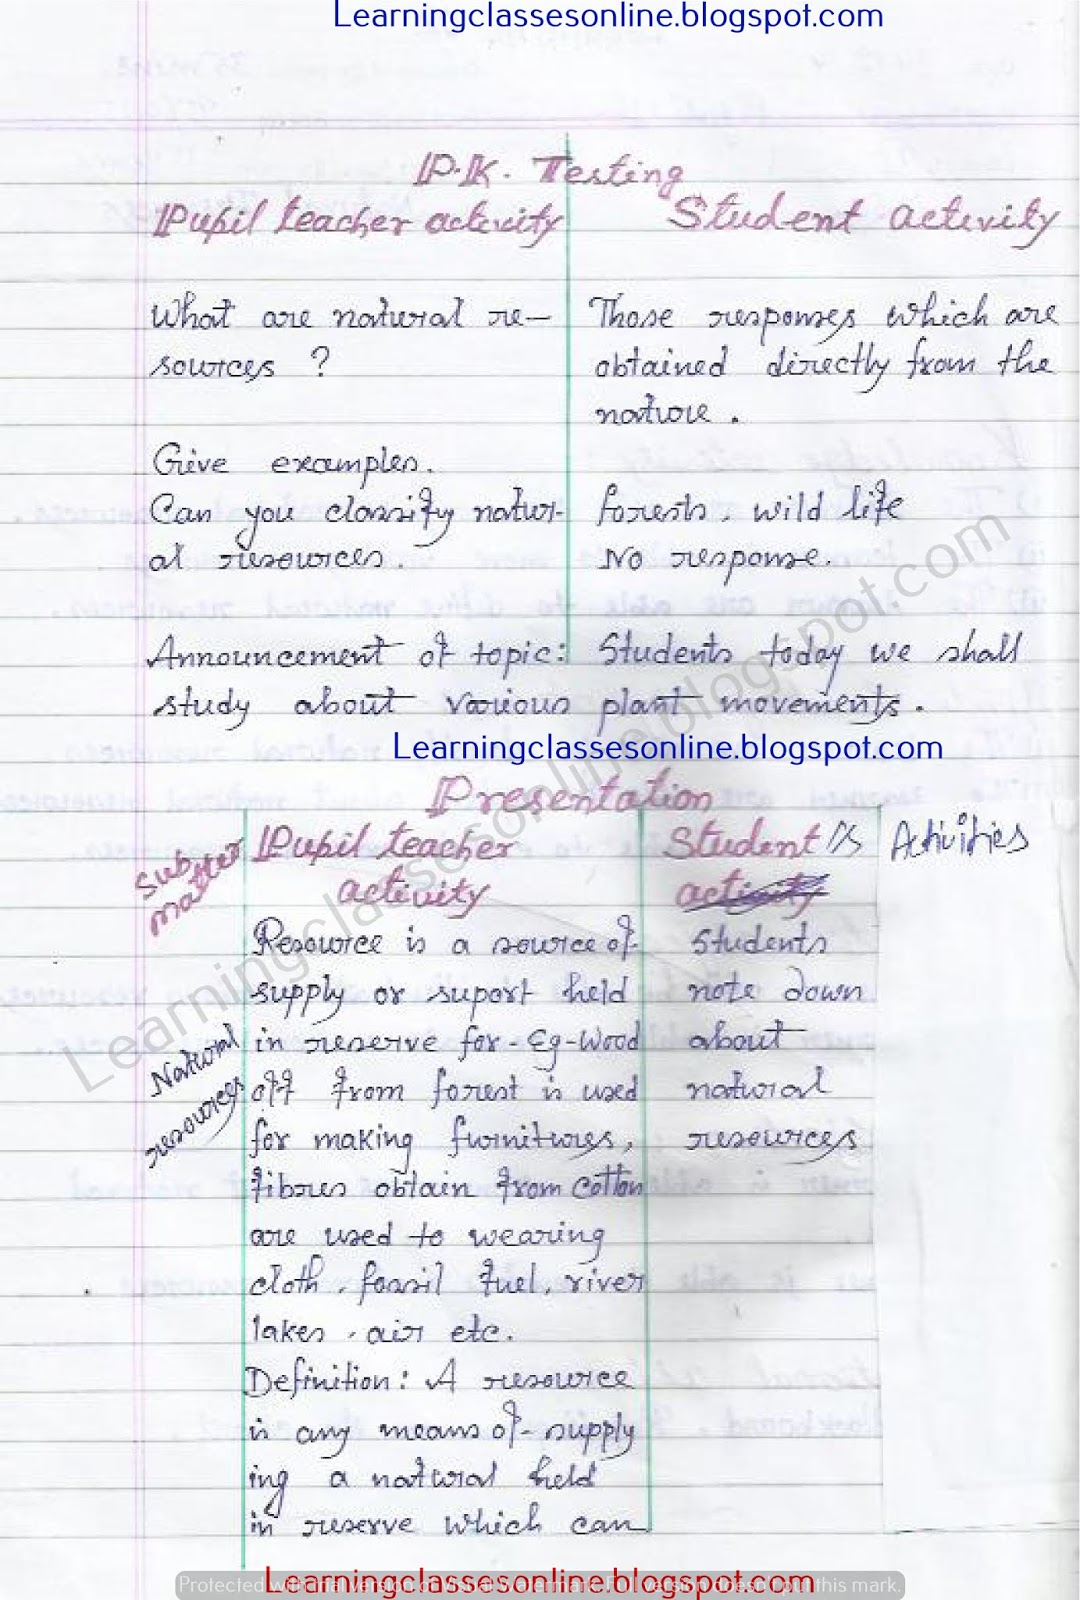 Learningclassesonline.blogspot.com
P.K. Testing
Pupil teacher activity
Student activity
What are natural re-
sources ?
Those responses which are
obtained directly from the
nature.
Give examples.
Can you classify natur-
al resources.
forests, wild life
No response.
Announcement of topic: Students today we shall
study about various plant movements.
Learningclassesonline.blogspot.com
Presentation
Subject
matter
Pupil teacher
activity
Student's
activity
Activities
Natural
resources
Resource is a source of
supply or suport held
in reserve for-Eg-Wood
off from forest is used
for making furnitures,
fibres obtain from cotton
are used to wearing
cloth, fossil fuel, river
lakes, air etc.
Definition: A resource
is any means of supply
ing a natural held
in reserve which can
Students
note down
about
natural
resources
Learningclassesonline.blogspot.com
Learningclassesonline.blogspot.com
Protected with trial version of Visual Watermark. Full version doesn't put this mark.